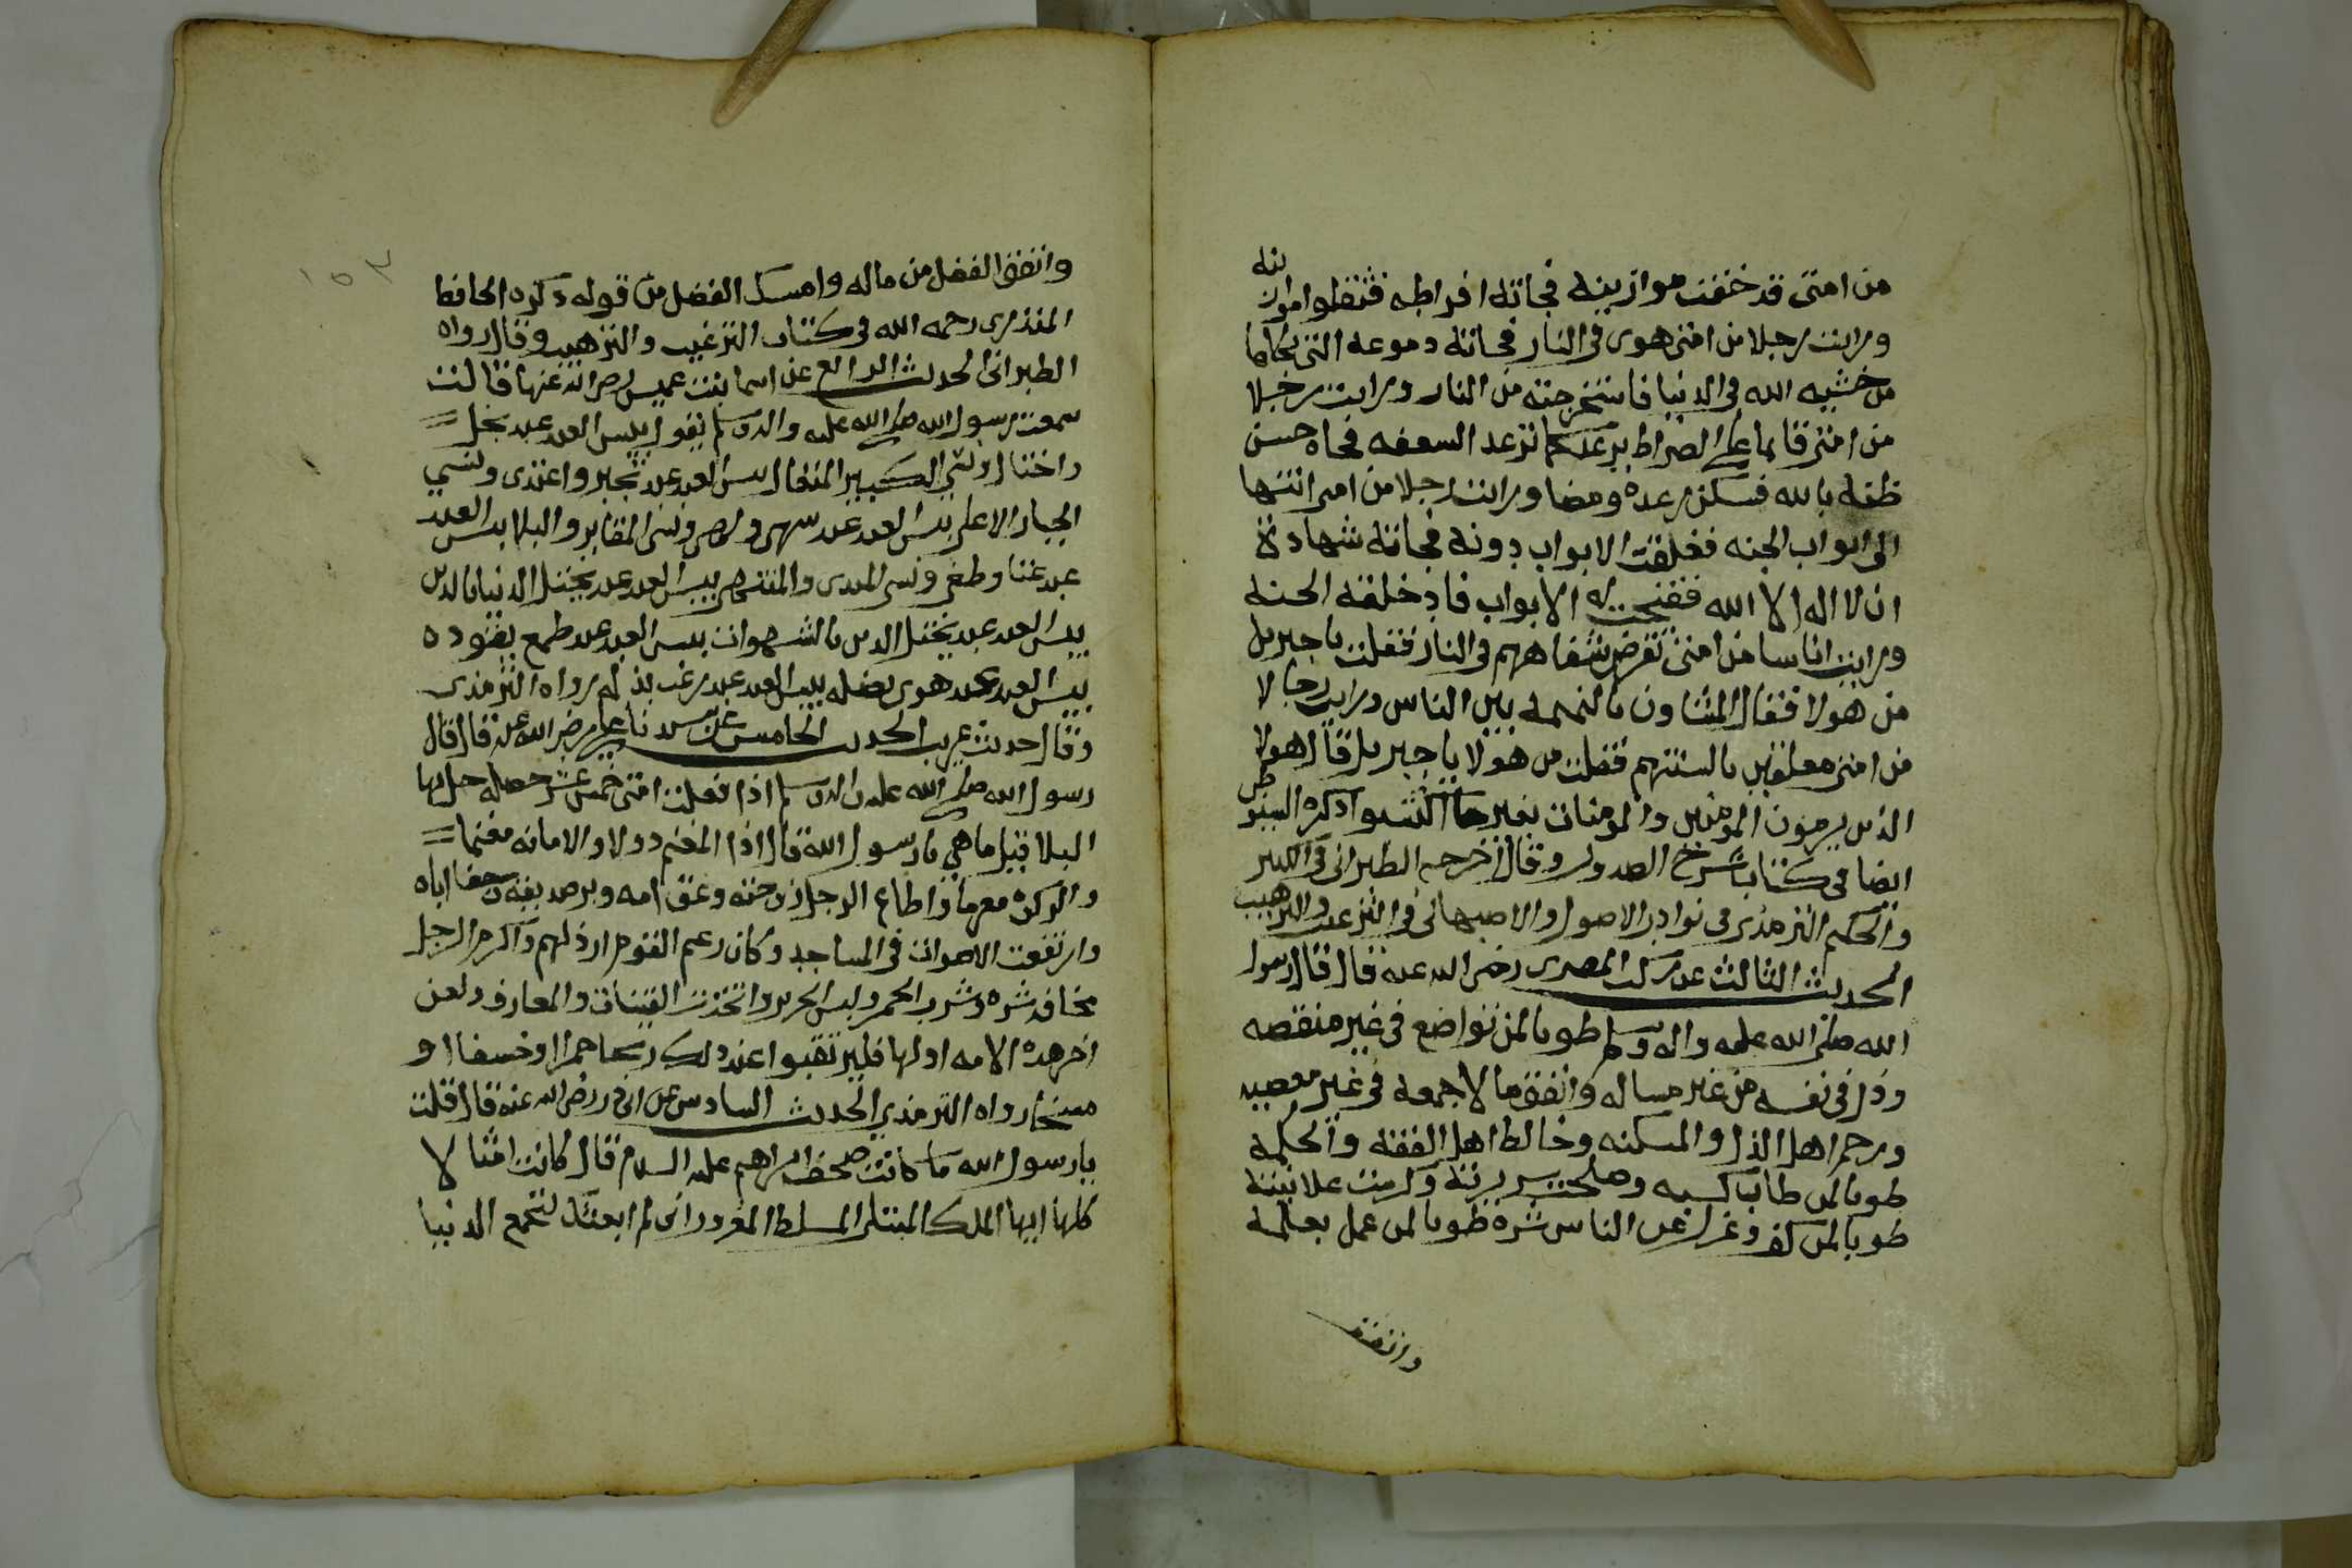 من امتى قد خففت موازينه فجاته افراطه فثقلوا موازينه
ورايت رجلا من امتى هوى فى النار فجاته دموعه التى بكاها
من خشيه الله فى الدنيا فاستخرجته من النار ورايت رجلا
من امتى قايما على الصراط يرعد كما ترعد السعفه فجاه حسن
ظنه بالله فسكن رعده ومضا ورايت رجلا من امتى انتها
الى ابواب الجنه فغلقت الابواب دونه فجاته شهادة
ان لا اله الا الله ففتحت له الابواب فادخلته الجنه
ورايت اناسا من امتى تقرض شفاههم فى النار فقلت يا جبريل
من هولا فقال المشاون بالنميمه بين الناس ورايت رجالا
من امتى معلقين بالسنتهم فقلت من هولا يا جبريل قال هولا
الذين يرمون المومنين والمومنات بغير ما اكتسبوا ذكره السيوطى
ايضا فى كتاب شرح الصدور وقال اخرجه الطبرانى فى الكبير
والحكيم الترمذى فى نوادر الاصول والاصبهانى فى الترغيب والترهيب
الحديث الثالث عن ركب المصرى رضى الله عنه قال قال رسول
الله صلى الله عليه واله وسلم طوبا لمن تواضع فى غير منقصه
وذل فى نفسه من غير مساله وانفق مالا جمعه فى غير معصيه
ورحم اهل الذل والمسكنه وخالط اهل الفقه والحكمه
طوبا لمن طاب كسبه وصلحت سريرته وكرمت علانيته
طوبا لمن كف وعزل عن الناس شره طوبا لمن عمل بعلمه
وانفق
١٥٣
وانفق الفضل من ماله وامسك الفضل من قوله ذكره الحافظ
المنذرى رحمه الله فى كتاب الترغيب والترهيب وقال رواه
الطبرانى الحديث الرابع عن اسما بنت عميس رضى الله عنها قالت
سمعت رسول الله صلى الله عليه واله وسلم يقول بيس العبد عبد بخل
واختال ونسي الكبير المتعال بيس العبد عبد تجبر واعتدى ونسي
الجبار الاعلى بيس العبد عبد سهى ولهى ونسى المقابر والبلا بيس العبد
عبد عتا وطغى ونسى المبدى والمنتهى بيس العبد عبد يختل الدنيا بالدين
بيس العبد عبد يختل الدين بالشهوات بيس العبد عبد طمع يقوده
بيس العبد عبد هوى يضله بيس العبد عبد رغب يذله رواه الترمذى
وقال حديث غريب الحديث الخامس عن سيدنا علي رضى الله عنه قال قال
رسول الله صلى الله عليه واله وسلم اذا فعلت امتى خمس عشر خصله حل بها
البلا قيل ما هي يا رسول الله قال اذا المغنم دولا والامانه مغنما
والزكوة مغرما واطاع الرجل زوجته وعق امه وبر صديقه وجفا اباه
وارتفعت الاصوات فى المساجد وكان زعيم القوم ارذلهم واكرم الرجل
مخافة شره وشرب الخمر ولبس الحرير واتخذت القينات والمعازف ولعن
اخر هذه الامه اولها فليرتقبوا عند ذلك ريحا حمرا او خسفا او
مسخا رواه الترمذي الحديث السادس عن ابى ذر رضى الله عنه قال قلت
يا رسول الله ما كانت صحف ابراهيم عليه السلام قال كانت امثالا
كلها ايها الملك المبتلى المسلط المغرور انى لم ابعثك لتجمع الدنيا